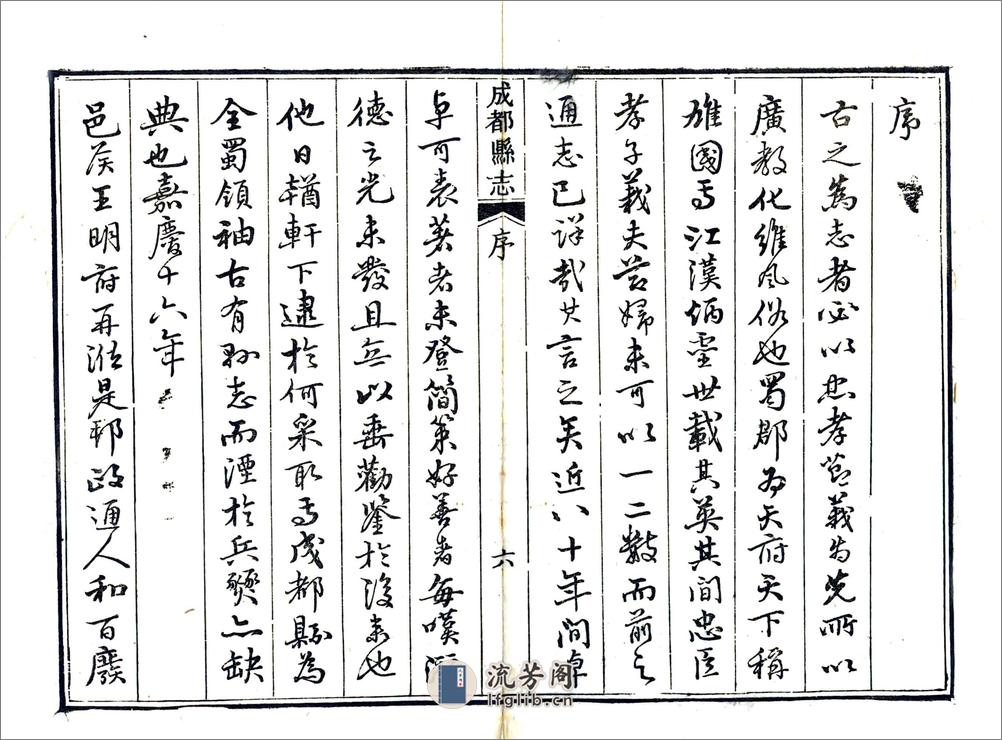 序
古之爲志者必以忠孝節義爲先所以
廣教化維風俗也蜀郡为天府天下稱
雄國焉江漢炳靈世載其英其間忠臣
孝子義夫節婦未可以一二數而前之
通志已详哉其言之矣近八十年間卓
成都縣志 序 六
卓可表著者未登簡策好善者每嘆
德之光未發且無以垂勸鑒於後来也
他日輶軒下逮於何采取焉成都縣為
全蜀領袖古有縣志而湮於兵燹亦缺
典也嘉慶十六年
邑侯王明府再涖是邦政通人和百廢
流芳阁
lfglib.cn